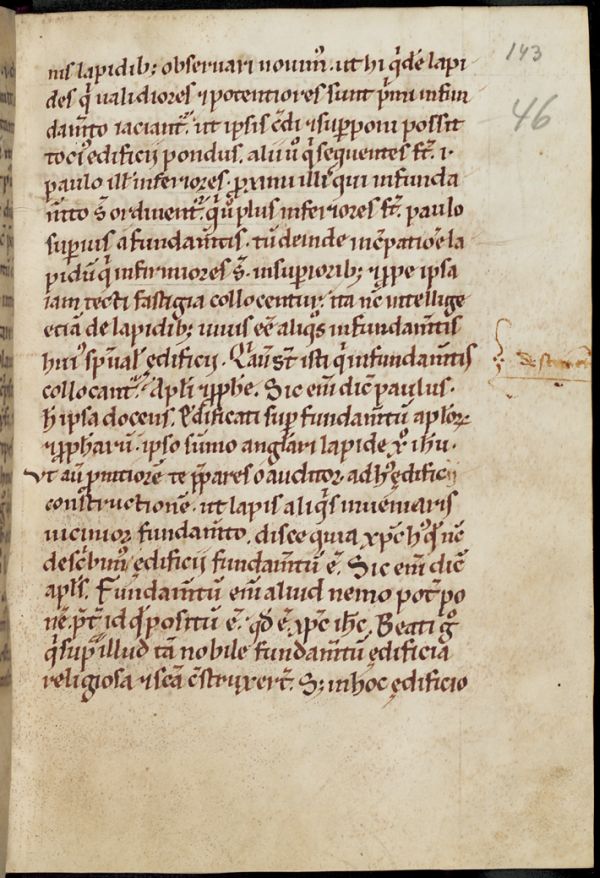 143
46
nis lapidib; obseruari nouim᷒. ut hi q̇dē lapi
des q̇ ualidiores ⁊ potentiores sunt p̄mi in fun
dam̄to iaciant᷑. ut ipsis c̄di ⁊ sup̱poni possit
toci᷒ edificij pondus. alii u̇ q̇ sequentes s̄t. ⁊
paulo ill᷒ inferiores. p̱ximi illi᷒ qui in funda
m̄to s̄ ordinent᷑. q̇ u̇ plus inferiores s̄t. paulo
sup̱ius a fundam̄tis. tū deinde inc̄patiōe la
pidū q̇ infirmiores s̄. in superiorib; ⁊ p̱pe ipsa
iam tecti fastigia collocentur. ita nc̄ intellige
etiā de lapidib; uiuis eē aliq̇s in fundam̄tis
hui᷒ sp̄ual᷒ ędificij. Qͥ aū s̄t isti q̇ in fundam̄tis
collocant᷑. Apl̄i ⁊ p̱phe. Sic eni̅ dic̄ paulus.
h̄ ipsa docens. Ędificati sup̱ fundam̄tū aplo̅ꝝ
⁊ p̱pharū. ipso sūmo angl̄ari lapide xp̄o ih̄u.
Vt aū p̄mtiorē te p̄pares o auditor. ad h᷒ ędificij
constructionē. ut lapis aliq̇s inueniaris
uicinior fundam̄to. disce quia xp̄c h᷒ q̇ nc̄
desc̄bim᷒ ędificij fundam̄tū ē. Sic eni̅ dic̄
apl̄s. Fundam̄tū eni̅ aliud nemo pot᷑ po
nē. p̄t᷑ id qd̄ positū ē. qd̄ ē. xp̄c ih̄c. Beati gͦ
q̇ sup̱ illud tā nobile fundam̄tū ędificia
religiosa ⁊ sc̄a c̄struxer̄t. S; in hoc ędificio